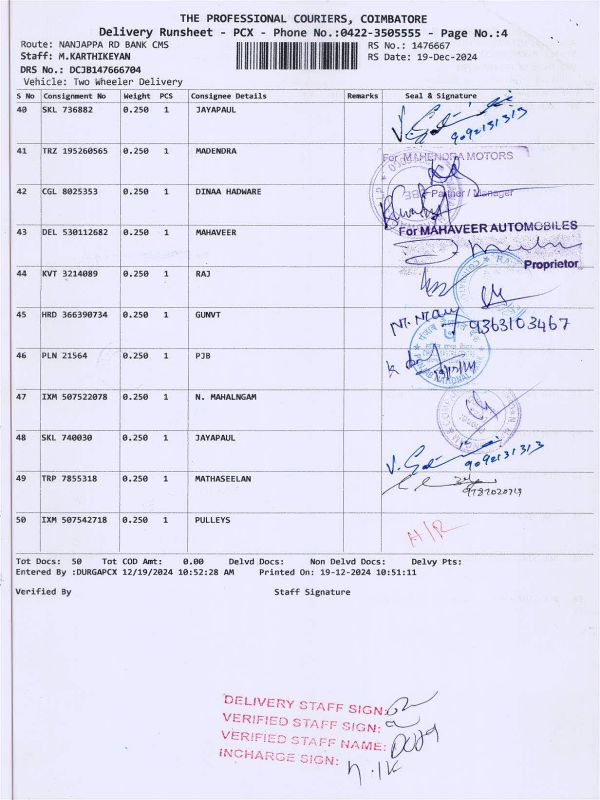 THE PROFESSIONAL COURIERS, COIMBATORE
Delivery Runsheet - PCX - Phone No.:0422-3505555 - Page No.:4
Route: NANJAPPA RD BANK CMS RS No.: 1476667
Staff: M.KARTHIKEYAN RS Date: 19-Dec-2024
DRS No.: DCJB147666704
Vehicle: Two Wheeler Delivery
S No Consignment No Weight PCS Consignee Details Remarks Seal & Signature
40 SKL 736882 0.250 1 JAYAPAUL
41 TRZ 195260565 0.250 1 MADENDRA
For MAHENDRA MOTORS
42 CGL 8025353 0.250 1 DINAA HADWARE
Partner / Manager
43 DEL 530112682 0.250 1 MAHAVEER
For MAHAVEER AUTOMOBILES
Proprietor
44 KVT 3214089 0.250 1 RAJ
45 HRD 366390734 0.250 1 GUNVT
9363103467
46 PLN 21564 0.250 1 PJB
47 IXM 507522078 0.250 1 N. MAHALNGAM
48 SKL 740030 0.250 1 JAYAPAUL
9092131313
49 TRP 7855318 0.250 1 MATHASEELAN
50 IXM 507542718 0.250 1 PULLEYS
Tot Docs: 50 Tot COD Amt: 0.00 Delvd Docs: Non Delvd Docs: Delvy Pts:
Entered By :DURGAPCX 12/19/2024 10:52:28 AM Printed On: 19-12-2024 10:51:11
Verified By Staff Signature
DELIVERY STAFF SIGN:
VERIFIED STAFF SIGN:
VERIFIED STAFF NAME:
INCHARGE SIGN: